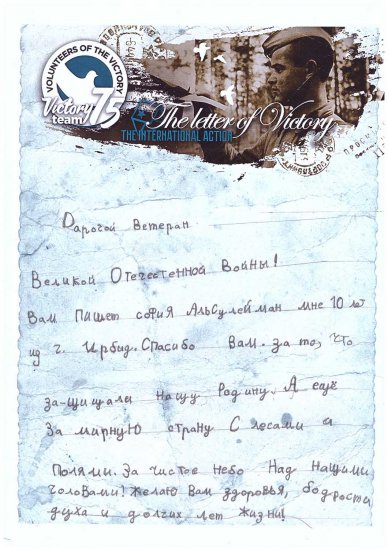 VOLUNTEERS OF THE VICTORY
Victory 75
team
The letter of Victory
THE INTERNATIONAL ACTION
Дарогой Ветеран
Великой Отечестенной Войны!
Вам Пишет софия Альсулейман мне 10 лет
из г. Ирбид. Спасибо Вам. за то, что
за-щищали нашу Родину. А ещё
За мирную страну С лесами и
Полями. За чистое небо Над нашими
головами! Желаю Вам здоровья, бодрости
духа и долгих лет жизни!